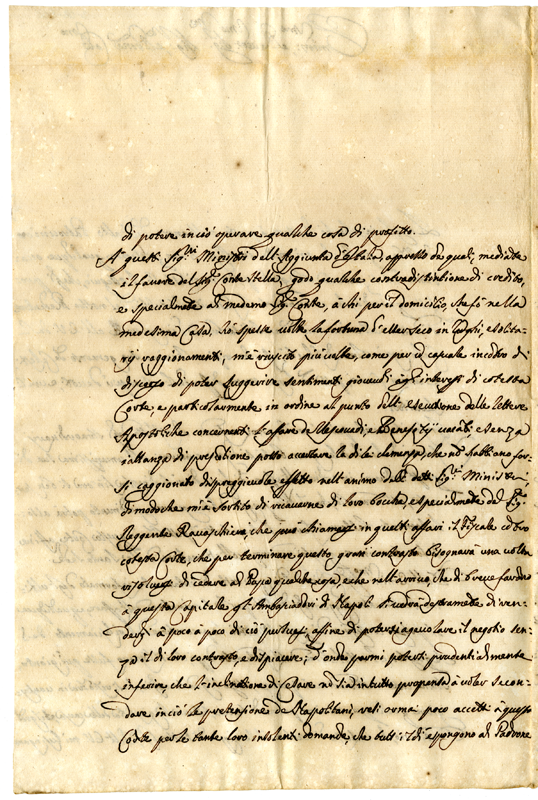 di potere in ciò operare qualche cosa di profitto.
A questi Sig.ri Ministri dell'Aggiunta d'Italia, appresso de quali, mediãte
il favore del Sig.r Conte Stella, godo qualche contradistintione di credito,
e specialmẽte al medemo Sig.r Conte, à chi per il domicilio, che fà nella
medesima Casa, hò spesse volte la fortuna d'esser seco in longhi, e solita-
rij raggionamenti, m'è riuscito più volte, come per casuale incidẽte di
discorso di poter suggerire sentimenti giovevoli à gl'interessi di cotesta
Corte, e particolarmente in ordine al punto dell'esecutione delle lettere
Apostoliche concernenti l'affare de Vescovadi, e Beneficij vacati, e senza
iattanza di presuntione posso accertare la di lei clemenza, che nõ habbiano for-
si caggionato dispreggievole effetto nell'animo delli detti Sig.ri Ministri,
di modo che m'è sortito di ricaverne di loro bocche, e specialmẽte del Sig.r
Reggente Ravaschiero, che può chiamarsi in questi affari il Fiscale contro
cotesta Corte, che per terminare questo gran contrasto bisognarà una volta
risolversi di cedere al Papa qualche cosa, e che nell'arrivo, che di breve farãno
à questa Capitale gl'Ambasciadori di Napoli si vedrà destramẽte di ren-
dersi à poco à poco di ciò persuasi, affine di potersi agevolare il negotio sen-
za il di loro contrasto, e dispiacere; d'onde parmi potersi prudentialmente
inferire, che l'inclinatione di Cesare nõ sia in tutto propensa à voler secon-
dare in ciò le pretenzione de Napolitani, resi ormai poco accetti à questa
Corte per le tante loro insolenti domande, che tutt'il dì espongono al Padrone